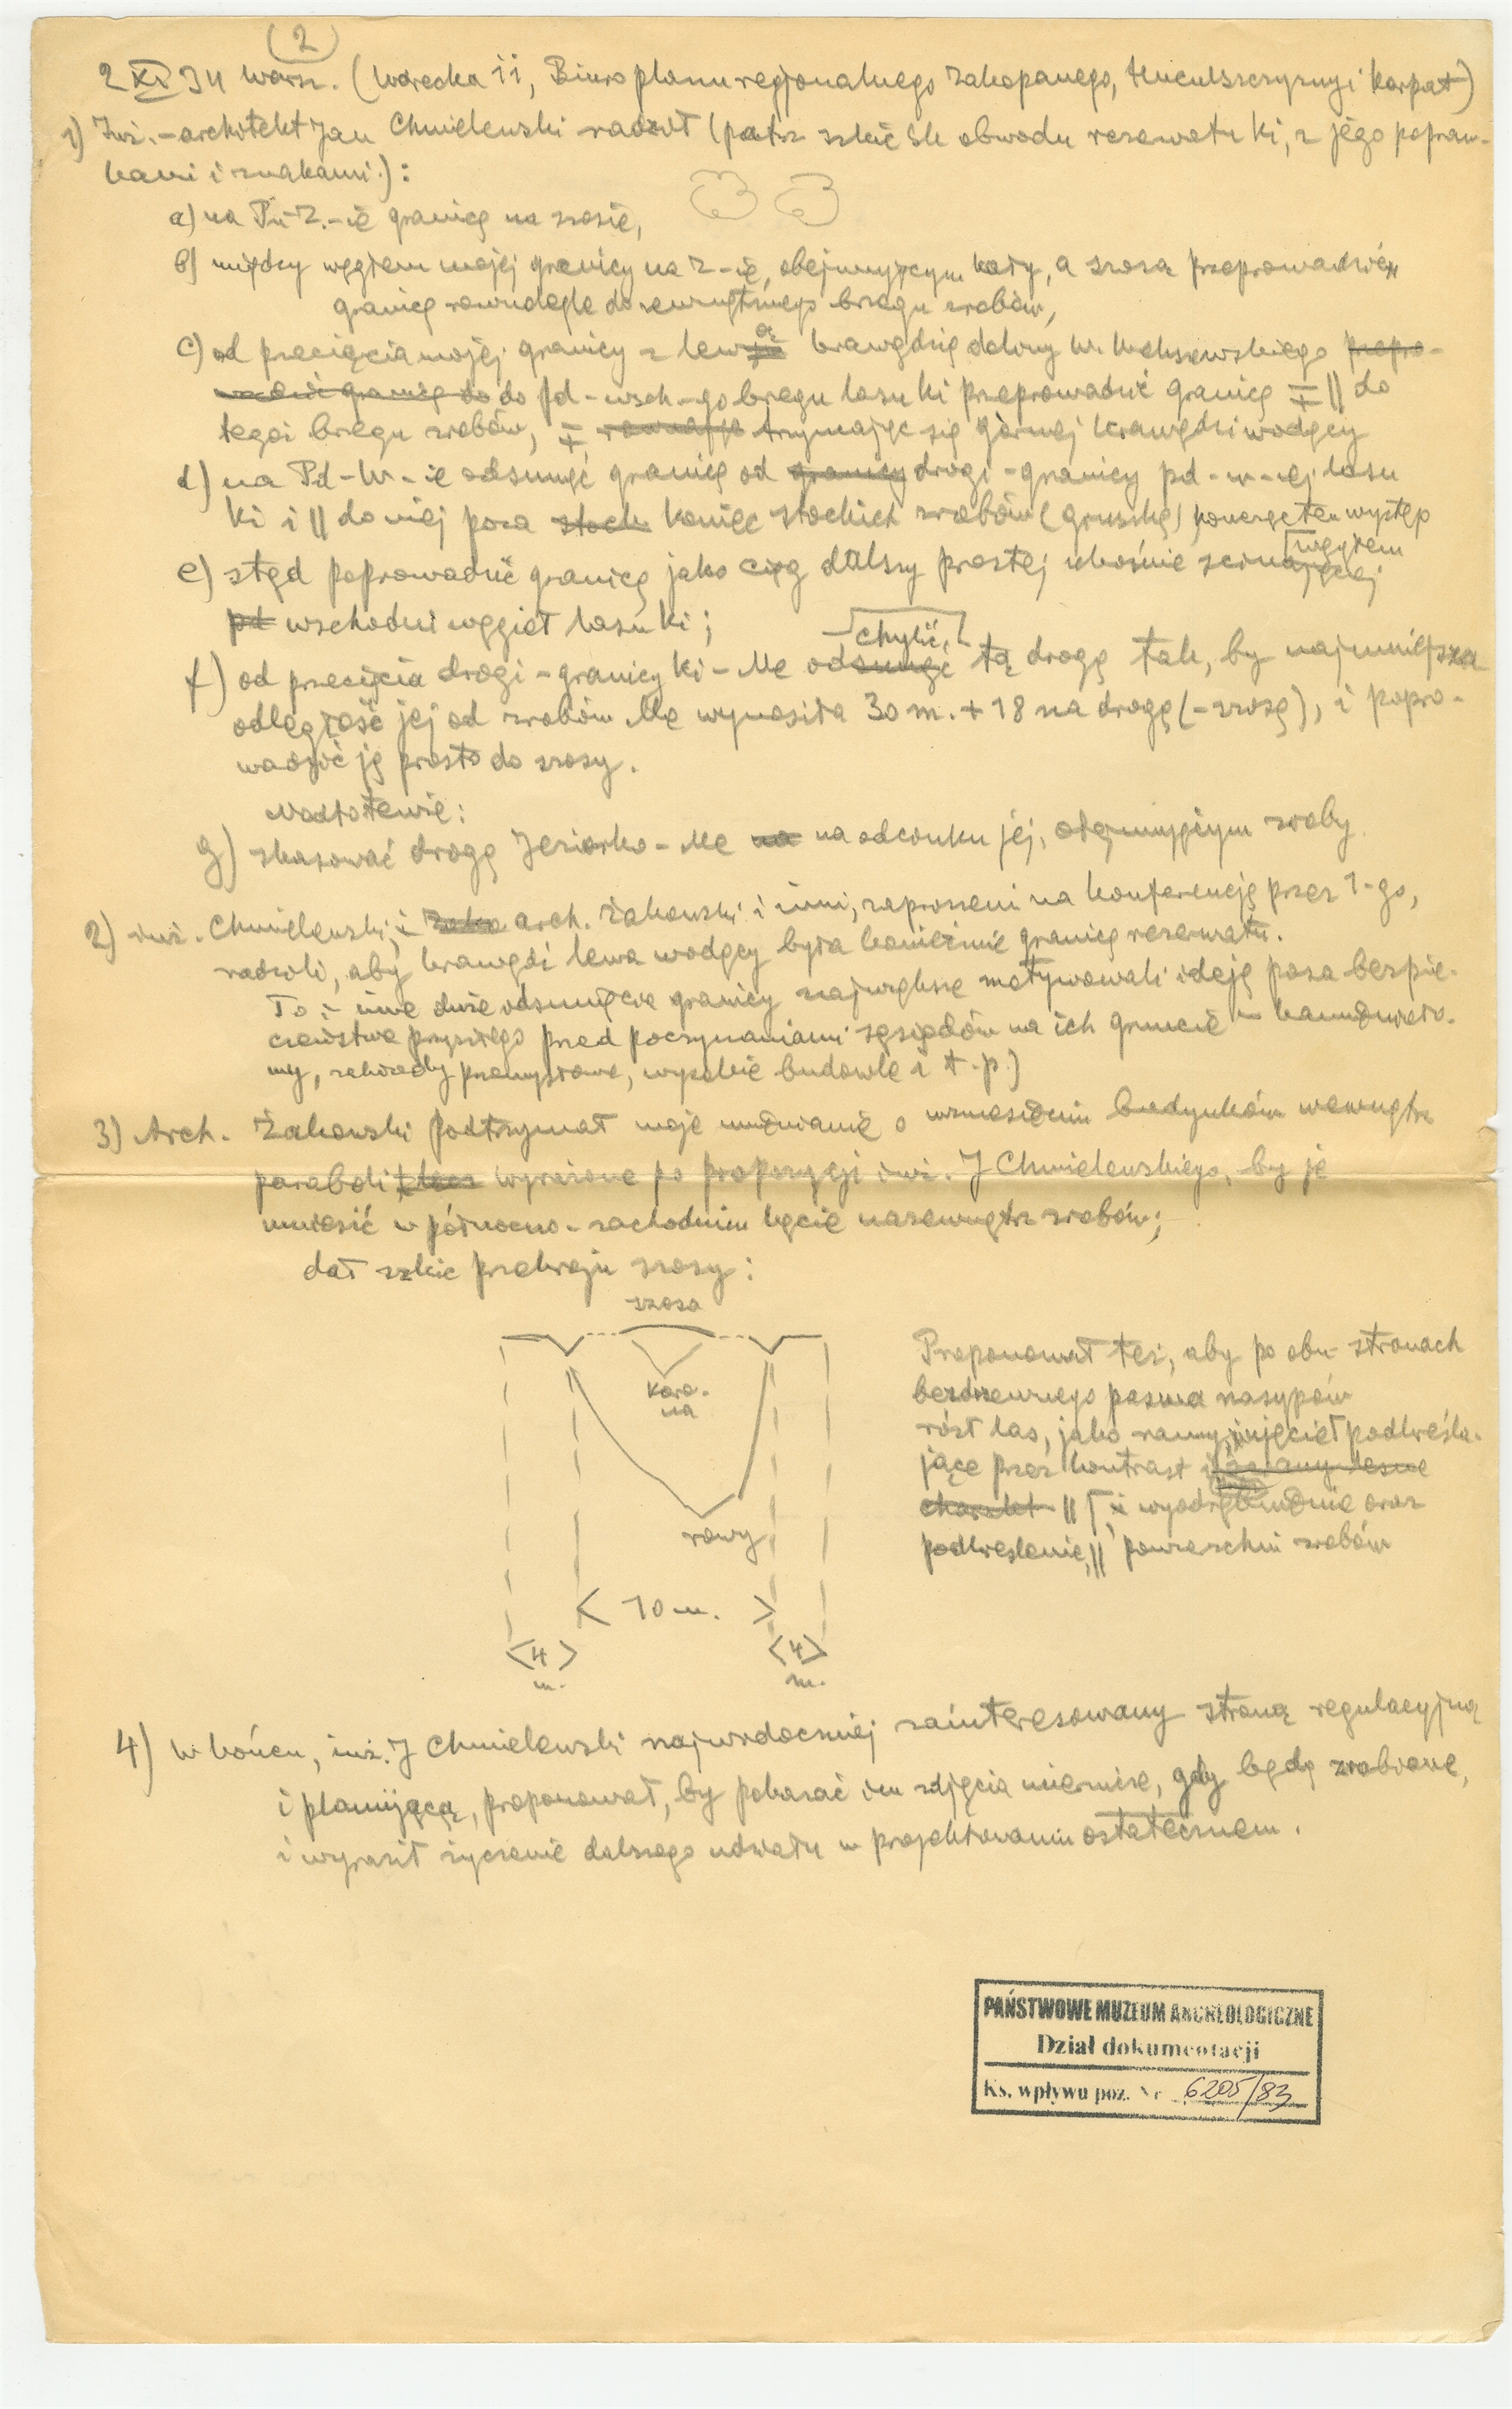 (2)
2 XI 34 Warsz. (Warecka 11, Biuro planu regjonalnego Zakopanego, Huculszczyzny i Karpat)
1) Inż.-architekt Jan Chmielewski radził (patrz szkic śk obwodu rezerwatu Ki, z jego popraw-
kami i znakami.):
a) na Pn-Z.-ie granicę na szosie,
b) między węgłem mojej granicy na Z-ie, obejmującym hałdy, a szosą przeprowadzić
granicę równolegle do zewnętrznego brzegu zrobów,
c) od przecięcia mojej granicy z lewą krawędzią doliny W. przepro-
wadzić granicę do do pd-wsch-go brzegu lasu Ki przeprowadzić granicę ∓ || do
tegoż brzegu zrobów, ∓ trzymając się górnej krawędzi wodący
d) na Pd-W-ie odsunąć granicę od granicy drogi-granicy pd-w-ej lasu
Ki i || do niej poza stoch koniec stockich zrobów (gruszkę) ten występ
e) stąd poprowadzić granicę jako ciąg dalszy prostej ukośnie ścinającej węgłem
pd wschodni węgieł lasu Ki;
f) od przecięcia drogi-granicy Ki-Me odsunąć chylić, tą drogę tak, by najmniejsza
odległość jej od zrobów Me wynosiła 30 m. + 18 na drogę (-szosę), i popro-
wadzić ją prosto do szosy.
Nadto
g) skasować drogę Jeziorko-Me na na odcinku jej, obejmującym zroby
2) inż. Chmielewski, i arch. Żakowski i inni, zaproszeni na konferencję przez 1-go,
radzili, aby krawędź lewa wodącej była koniecznie granicą rezerwatu.
To i inne duże odsunięcie granicy motywowali ideją poza bezpie-
czeństwa przyszłego przed poczynaniami sąsiadów na ich gruncie –
my, zakłady przemysłowe, wysokie budowle i t. p.)
3) Arch. Żakowski podtrzymał moje mniemanie o wznoszeniu budynków wewnątrz
paraboli wyrażone po propozycji inż. J Chmielewskiego, by je
wznosić w północno-zachodnim kącie nazewnątrz zrobów;
dał szkic przekroju szosy:
szosa
koro-
na
rowy
< 10 m. >
< 4 >
m.
< 4 >
m.
Proponował też, aby po obu stronach
bezdrzewnego pasma nasypów
rósł las, jako ramy, podkreśla-
jące przez kontrast leśne
charakt || i wyodrębnienie oraz
podkreślenie, || powierzchni zrobów
4) W końcu, inż. J Chmielewski najwidoczniej zainteresowany stroną regulacyjną
i planującą, proponował, by pokazać im zdjęcia miernicze, gdy będą zrobione,
i wyraził życzenie dalszego udziału w projektowaniu ostatecznem.
PAŃSTWOWE MUZEUM ARCHEOLOGICZNE
Dział dokumentacji
Ks. wpływu poz. Nr 6205/83